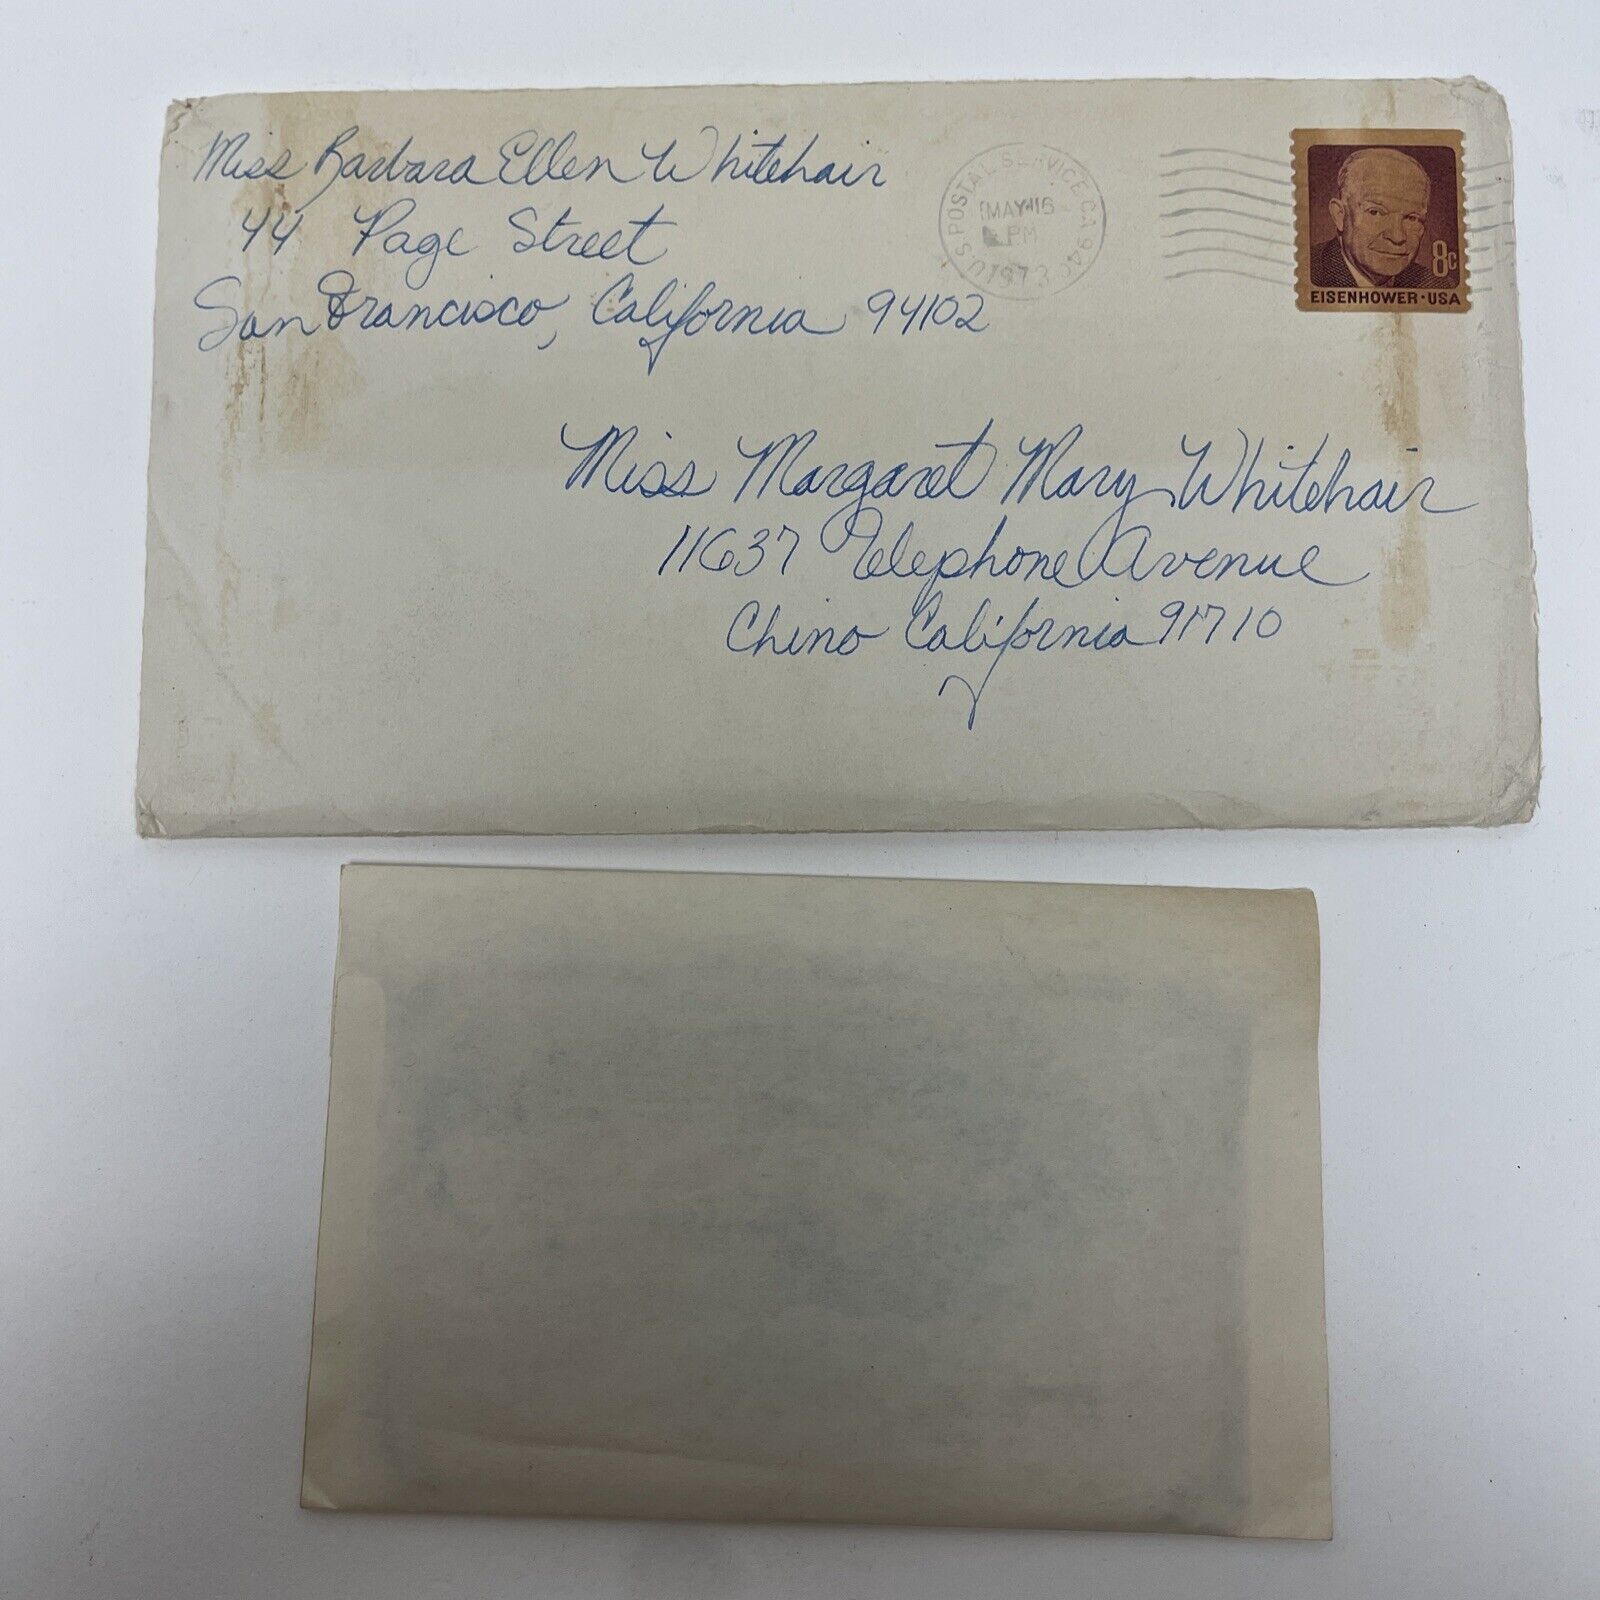 Miss Barbara Ellen Whitehair
44 Page Street
San Francisco, California 94102
U.S. POSTAL SERVICE CA
MAY 16
PM
1973
8c
EISENHOWER·USA
Miss Margaret Mary Whitehair
11637 Telephone Avenue
Chino California 91710